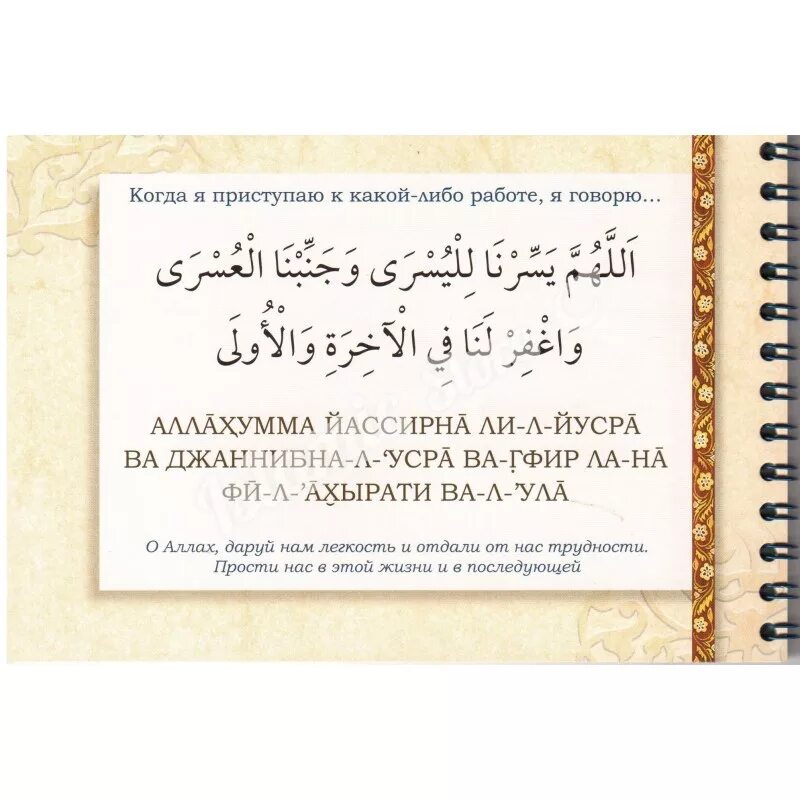 Когда я приступаю к какой-либо работе, я говорю...
اَللَّهُمَّ يَسِّرْنَا لِلْيُسْرَى وَجَنِّبْنَا الْعُسْرَى
وَاغْفِرْ لَنَا فِي الْآخِرَةِ وَالْأُولَى
АЛЛА̄Х̣УММА ЙАССИРНА̄ ЛИ-Л-ЙУСРА̄
ВА ДЖАННИБНА-Л-ʻУСРА̄ ВА-Г̣ФИР ЛА-НА̄
ФӢ-Л-ʼА̄Х̮ЫРАТИ ВА-Л-ʼУЛА̄
О Аллах, даруй нам легкость и отдали от нас трудности.
Прости нас в этой жизни и в последующей